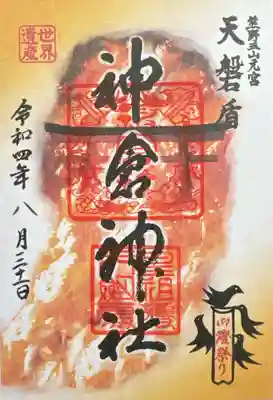 熊野三山元宮
天磐盾
神倉神社
令和四年 八月三十一日
世界
遺産
御燈祭り